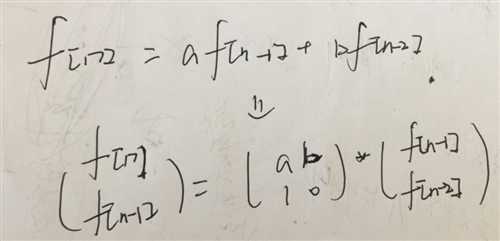 f[n] = a f[n-1] + b f[n-2].
⇓
( f[n] f[n-1] ) = ( a b 1 0 ) * ( f[n-1] f[n-2] )